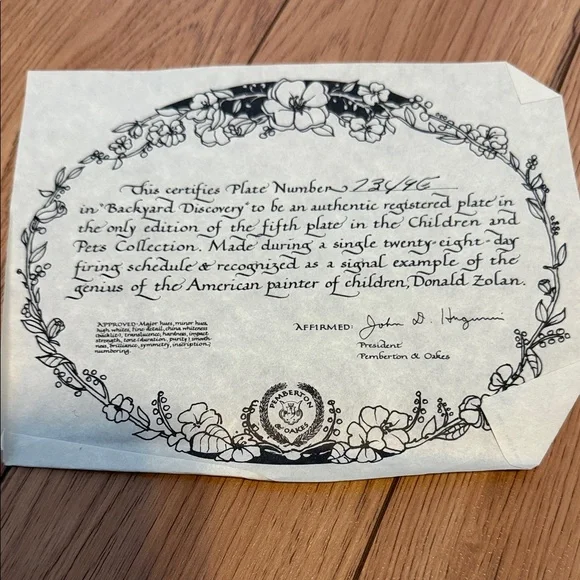 This certifies Plate Number 7349G
in "Backyard Discovery" to be an authentic registered plate in
the only edition of the fifth plate in the Children and
Pets Collection. Made during a single twenty-eight-day
firing schedule & recognized as a signal example of the
genius of the American painter of children, Donald Zolan.
APPROVED: Major hues, minor hues,
high whites, fine detail, china whiteness
translucence, hardness, impact
strength, tone (duration, purity) smooth-
ness, brilliance, symmetry, inscription,
numbering.
AFFIRMED: John D. Hugunin
President
Pemberton & Oakes
PEMBERTON
& OAKES